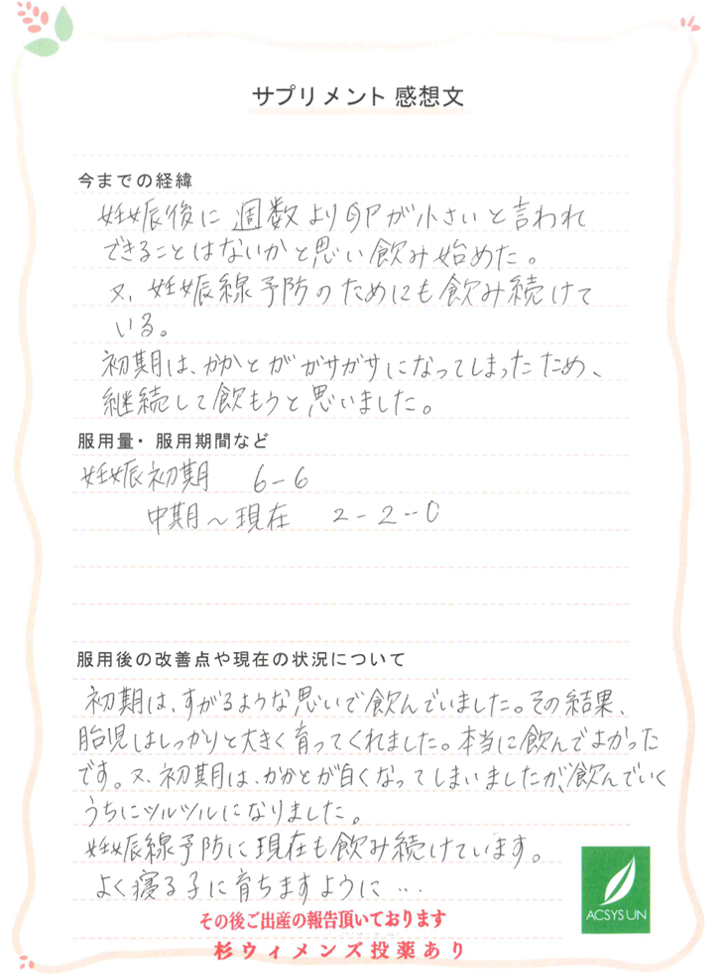 サプリメント 感想文
今までの経緯
妊娠後に 週数より卵が小さいと言われ
できることはないかと思い飲み始めた。
又、妊娠線予防のためにも飲み続けて
いる。
初期は、かかとがガサガサになってしまったため、
継続して飲もうと思いました。
服用量・服用期間など
妊娠初期 6-6
中期〜現在 2-2-0
服用後の改善点や現在の状況について
初期は、すがるような思いで飲んでいました。その結果、
胎児はしっかりと大きく育ってくれました。本当に飲んでよかった
です。又、初期は、かかとが白くなってしまいましたが、飲んでいく
うちにツルツルになりました。
妊娠線予防に現在も飲み続けています。
よく寝る子に育ちますように…
その後ご出産の報告頂いております
杉ウィメンズ投薬あり
ACSYSUN